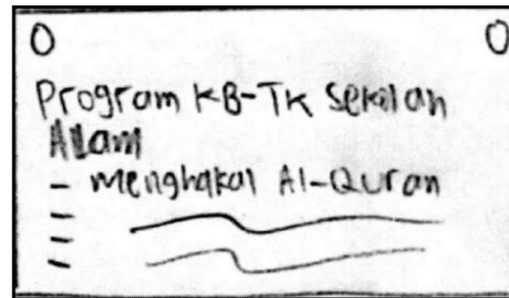 Program KB-TK Sekolah
Alam
- menghafal Al-Quran
-
-
-